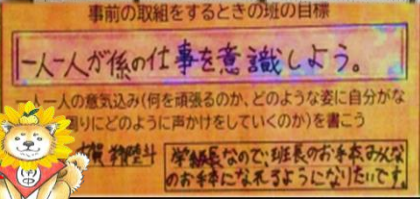 事前の取組をするときの班の目標
一人一人が係の仕事を意識しよう。
一人の意気込み(何を頑張るのか、どのような姿に自分がな
周りにどのように声かけをしていくのか)を書こう
学級長なので、班長のお手本、みんな
のお手本になれるようになりたいです。